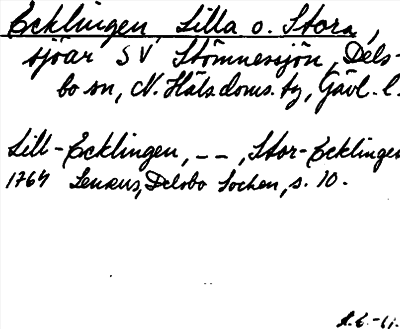 Ecklingen, Lilla o. Stora,
sjöar SV Stömnessjön, Dels-
bo sn, N. Häls. doms. tg, Gävl. l.
Lill-Ecklingen, --, Stor-Ecklingen
1764 Lenæus, Delsbo Sochen, s. 10.